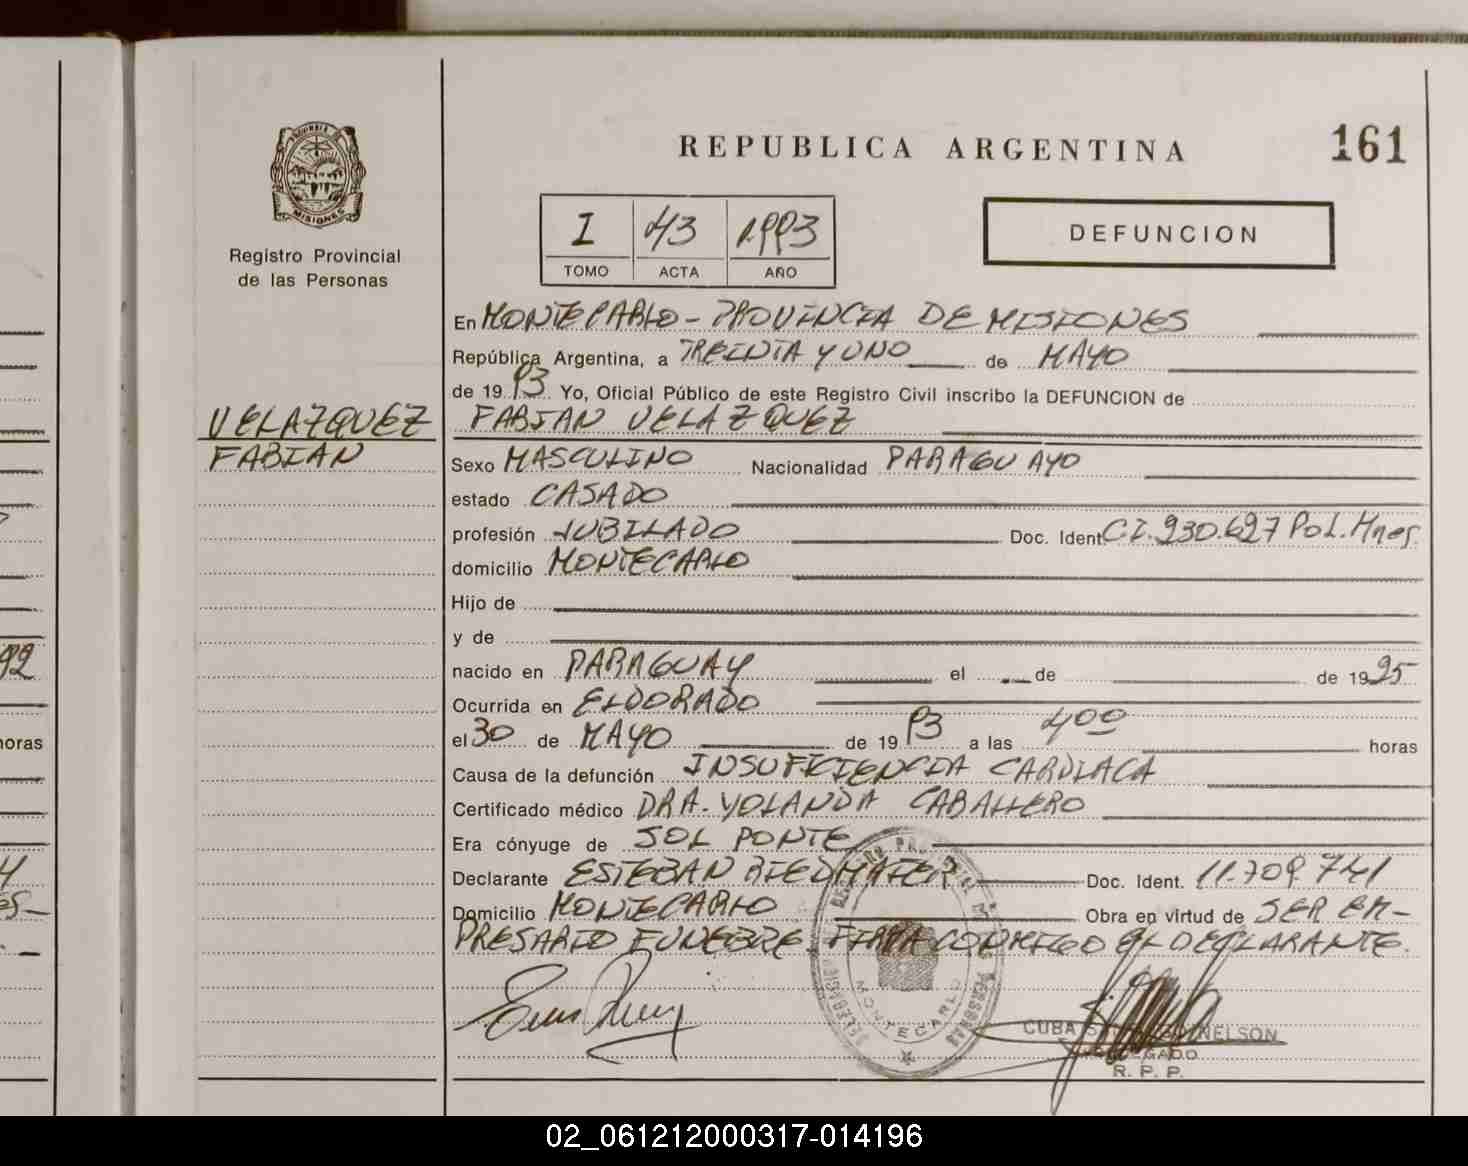 REPUBLICA ARGENTINA
161
PROVINCIA DE
MISIONES
Registro Provincial
de las Personas
I 43 1993
TOMO ACTA AÑO
DEFUNCION
En MONTECARLO - PROVINCIA DE MISIONES
República Argentina, a TREINTA Y UNO de MAYO
de 19 93 Yo, Oficial Público de este Registro Civil inscribo la DEFUNCION de
VELAZQUEZ
FABIAN
FABIAN VELAZQUEZ
Sexo MASCULINO Nacionalidad PARAGUAYO
estado CASADO
profesión JUBILADO Doc. Ident. C.I. 930.627 Pol. Mnes.
domicilio MONTECARLO
Hijo de
y de
nacido en PARAGUAY el de de 19 25
Ocurrida en ELDORADO
el 30 de MAYO de 19 93 a las 4 00 horas
Causa de la defunción INSUFICIENCIA CARDIACA
Certificado médico DRA. YOLANDA CABALLERO
Era cónyuge de SOL PONTE
Declarante ESTEBAN BIEDMAIER Doc. Ident. 11.709.741
Domicilio MONTECARLO Obra en virtud de SER EM-
PRESARIO FUNEBRE. FIRMA CONMIGO EL DECLARANTE.
MONTECARLO
CUBA NELSON
DELEGADO
R. P. P.
92
horas
02_061212000317-014196